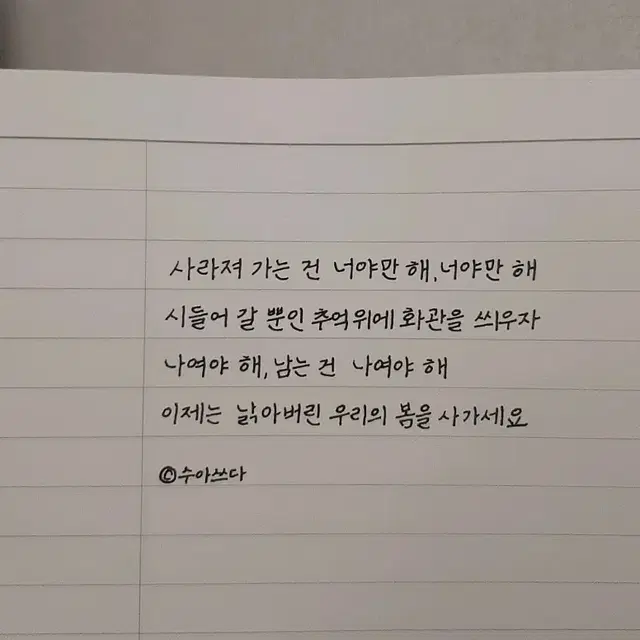 사라져 가는 건 너야만 해, 너야만 해
시들어 갈 뿐인 추억위에 화관을 씌우자
나여야 해, 남는 건 나여야 해
이제는 낡아버린 우리의 봄을 사가세요
©수아쓰다